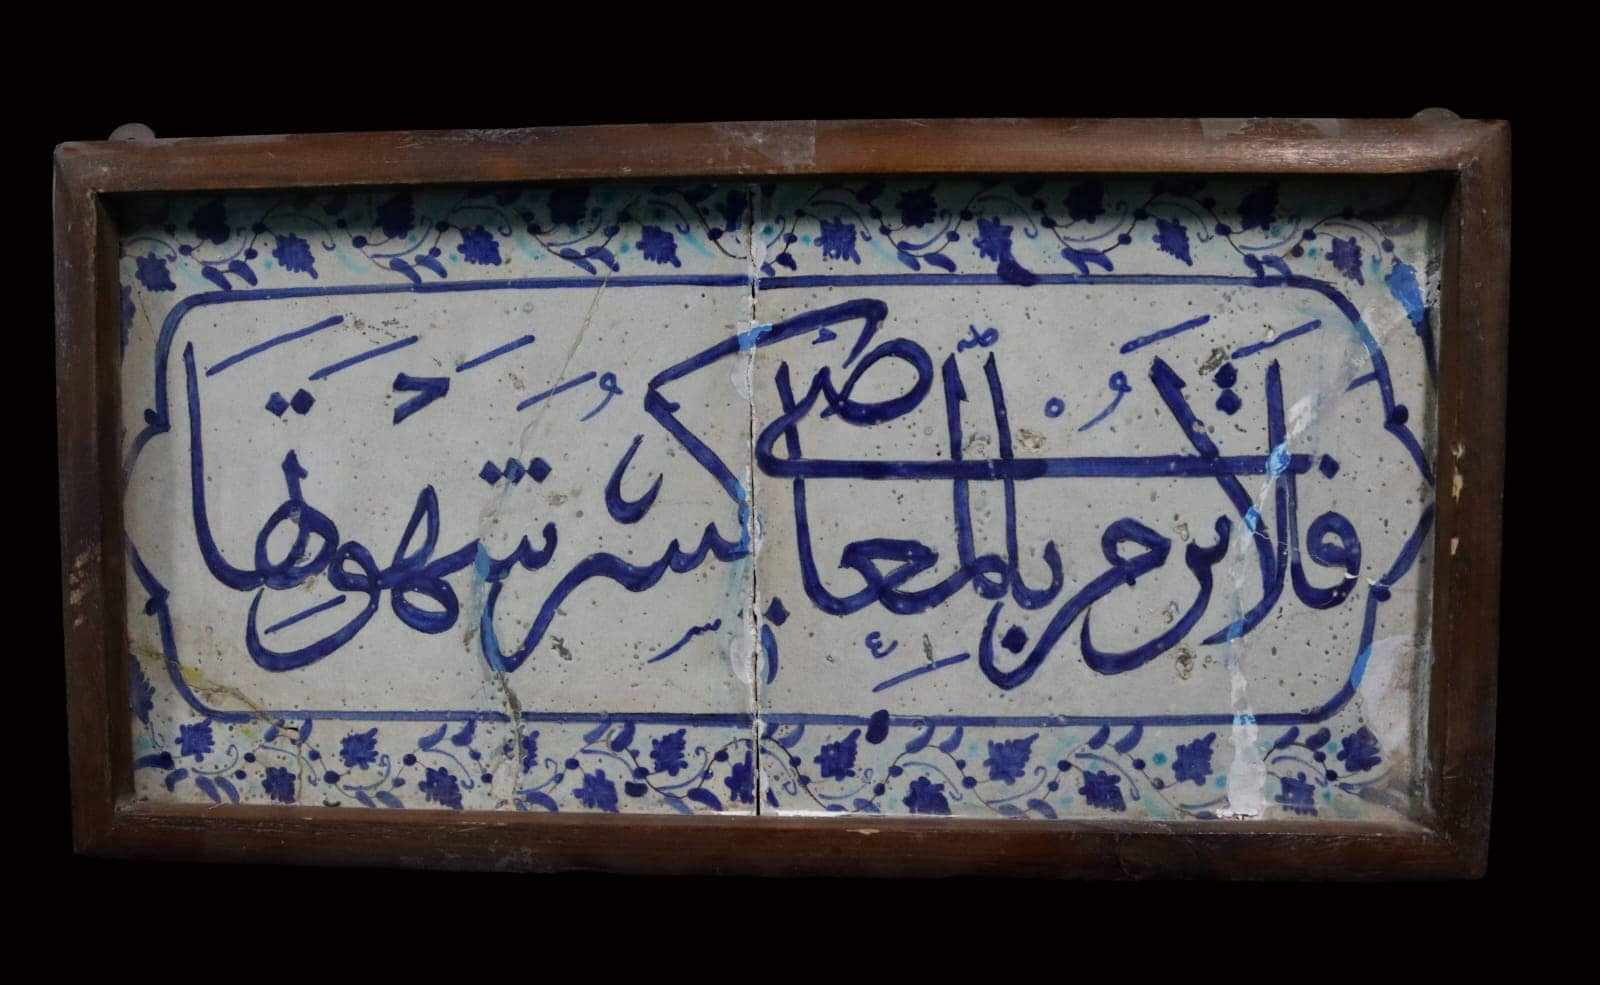 فَلَا تَرُمْ بِالْمَعَاصِى كَسْرَ شَهْوَتِهَا